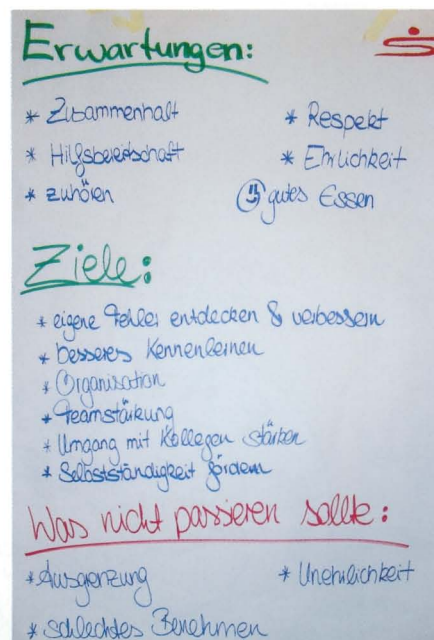 Erwartungen:
* Zusammenhalt
* Hilfsbereitschaft
* zuhören
* Respekt
* Ehrlichkeit
gutes Essen
Ziele:
* eigene Fehler entdecken & verbessern
* besseres Kennenlernen
* Organisation
* Teamstärkung
* Umgang mit Kollegen stärken
* Selbstständigkeit fördern
Was nicht passieren sollte:
* Ausgenzung
* Unehrlichkeit
* schlechtes Benehmen